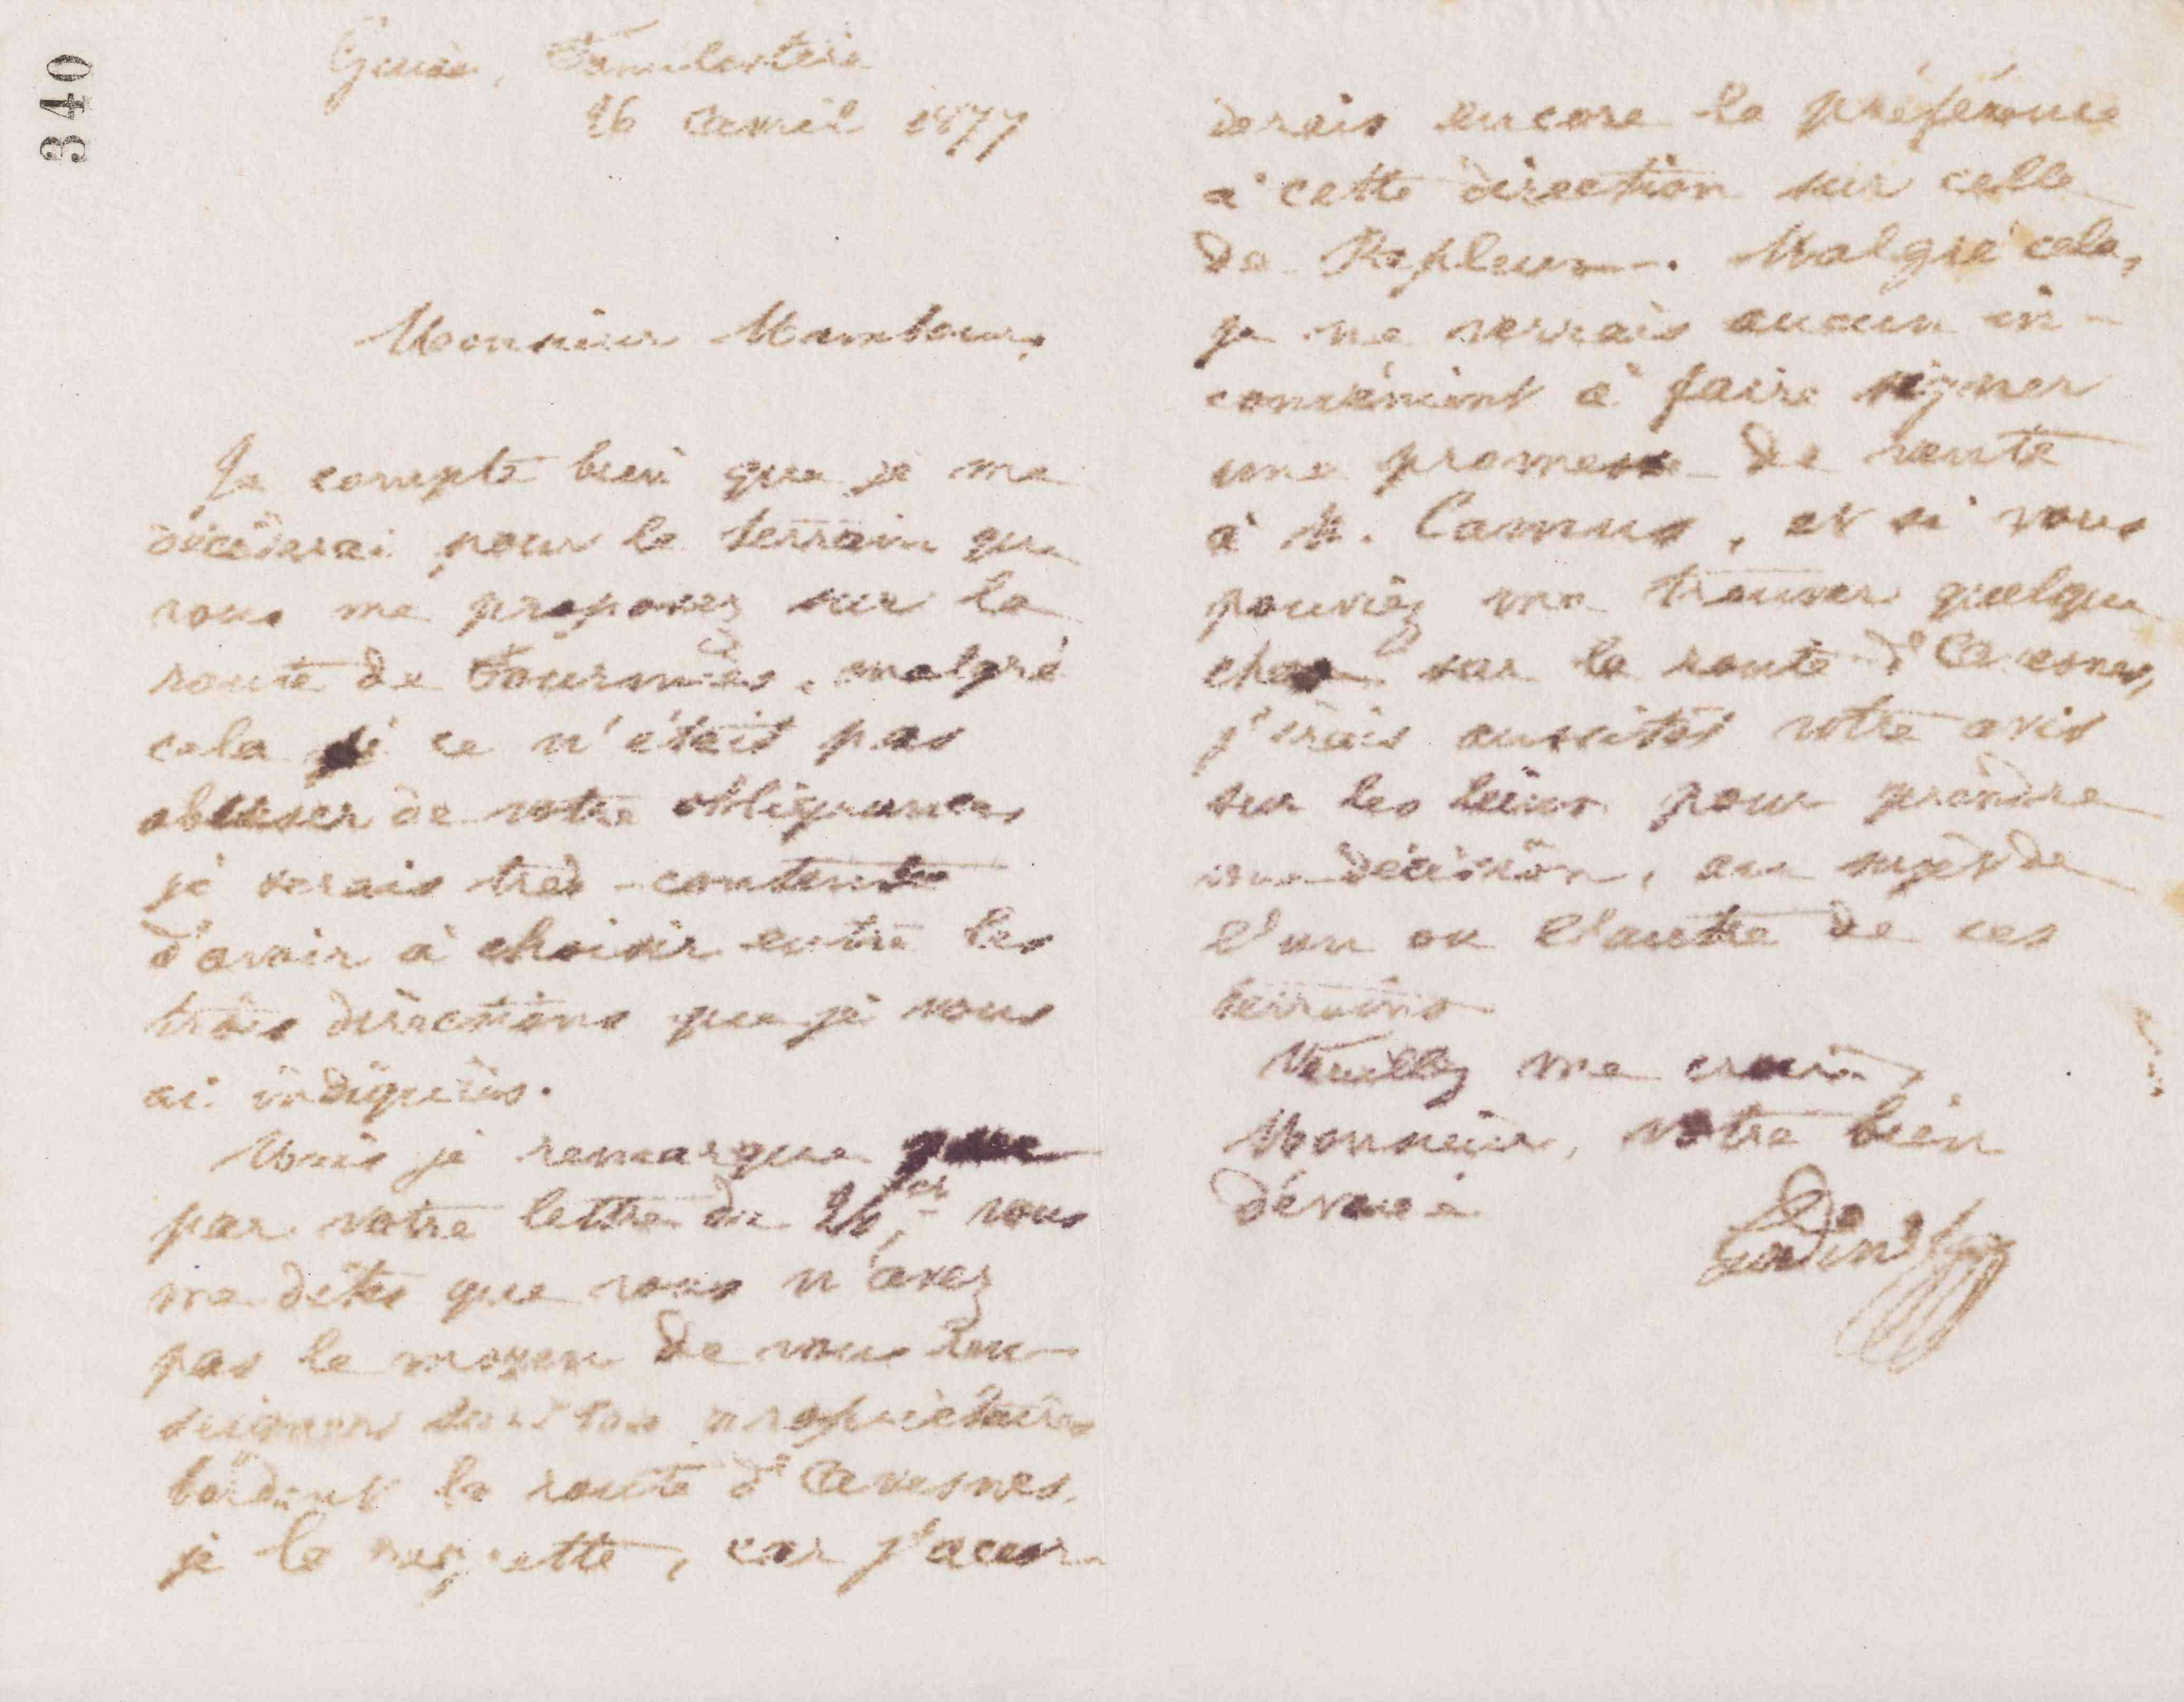 340
Guise, Familistère
26 avril 1877
Monsieur Mambour,
Je compte bien que je me
déciderai pour le terrain que
vous me proposez sur la
route de Fourmies, malgré
cela si ce n'était pas
abuser de votre obligeance
je serais très-contente
d'avoir à choisir entre les
trois directions que je vous
ai indiquées.
Mais je remarque que
par votre lettre du 26, vous
me dites que vous n'avez
pas le moyen de vous ren-
seigner sur les propriétaires
bordant la route d'Avesnes.
je le regrette, car j'accor-
derais encore la préférence
à cette direction sur celle
de Malgré cela,
je ne verrais aucun in-
convénient à faire signer
une promesse de vente
à M. Camus, et si vous
pouviez me trouver quelque
chose sur la route d'Avesnes,
j'irais aussitôt votre avis
sur les lieux pour prendre
une décision, au sujet de
l'un ou l'autre de ces
terrains
Veuillez me croire,
Monsieur, votre bien
dévoué
Godin